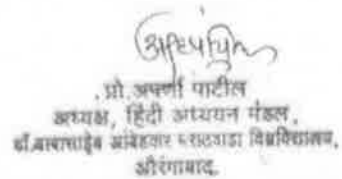 प्रो.अपर्णा पाटील
अध्यक्ष, हिंदी अध्ययन मंडल,
डॉ.बाबासाहेब आंबेडकर मराठवाडा विश्वविद्यालय,
औरंगाबाद.